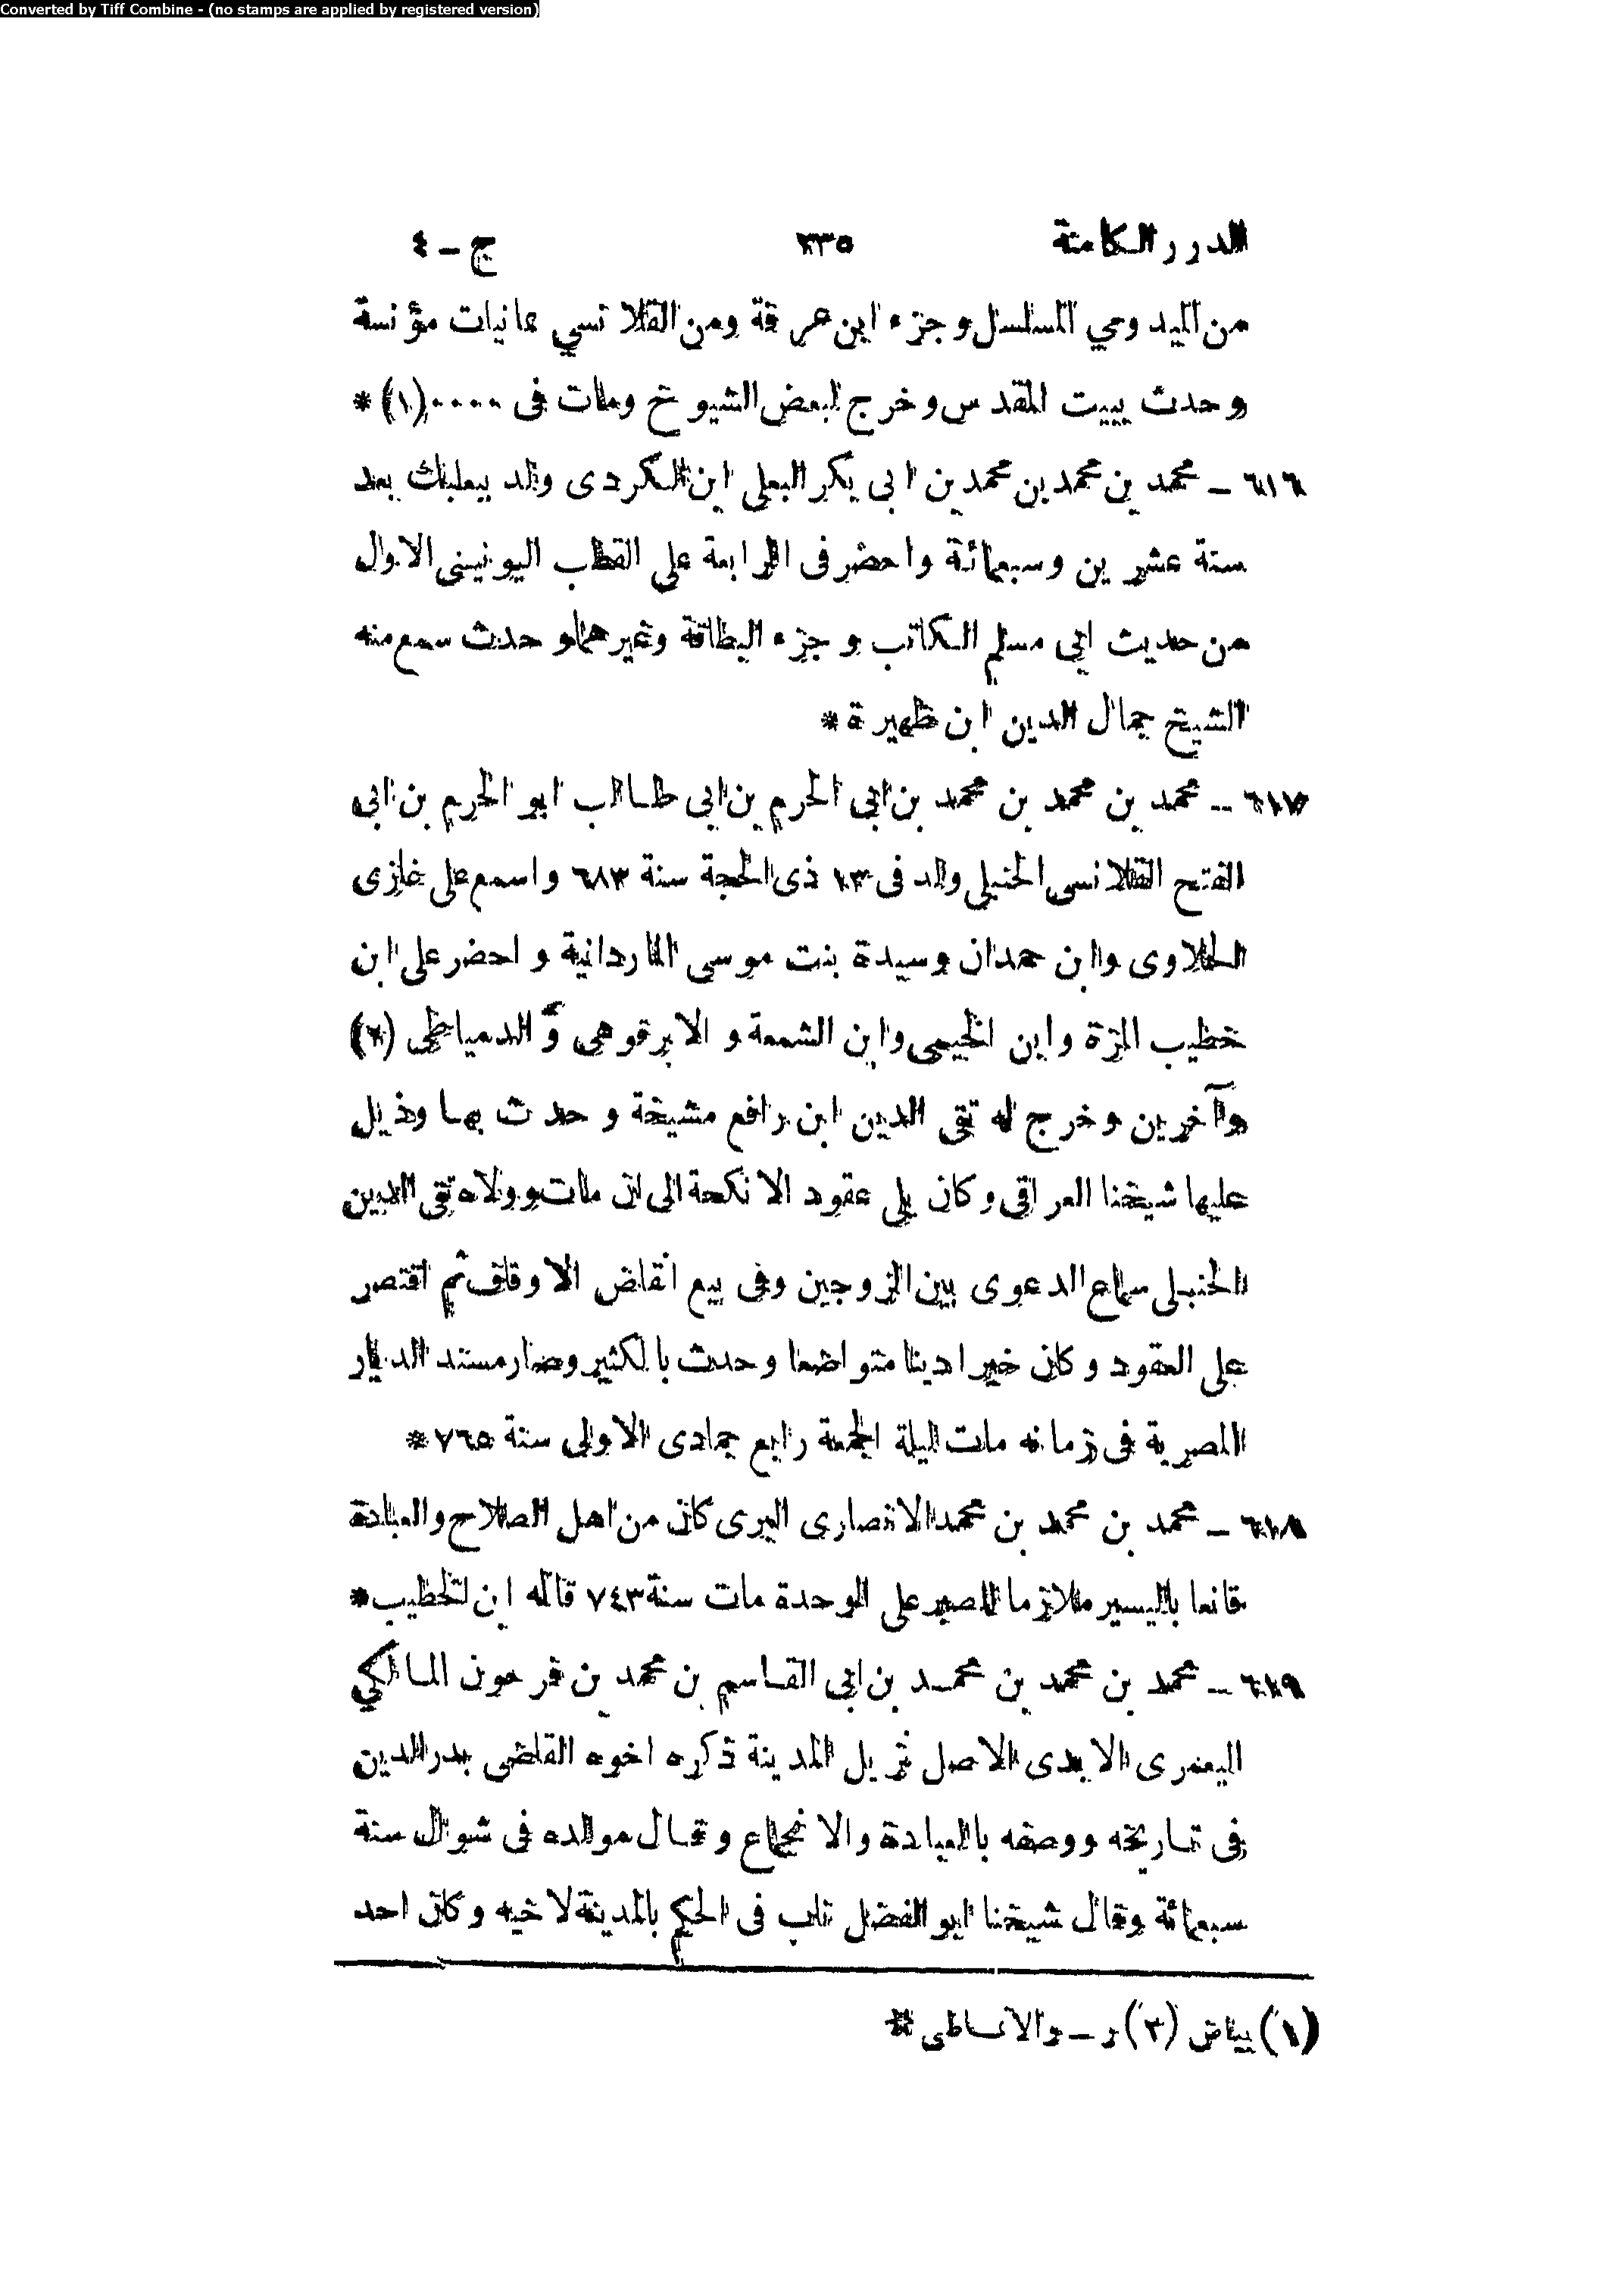 Converted by Tiff Combine - (no stamps are applied by registered version)
الدرر الكامنة ٢٣٥ ج - ٤
من الميدومي المسلسل وجزء ابن عرفة ومن القلانسي ثمانيات مؤنسة
وحدث ببيت المقدس وخرج لبعض الشيوخ ومات فى ٠٠٠٠(١)*
٦١٦ - محمد بن محمد بن محمد بن ابى بكر البعلى ابن الكردى ولد ببعلبك بعد
سنة عشرين وسبعمائة واحضر فى الرابعة على القطب اليونينى الاول
من حديث ابى مسلم الكاتب وجزء البطاقة وغيرهما وحدث سمع منه
الشيخ جمال الدين ابن ظهيرة *
٦١٧ - محمد بن محمد بن محمد بن ابى الحرم بن ابى طالب ابو الحرم بن ابى
الفتح القلانسى الحنبلى ولد فى ١٣ ذى الحجة سنة ٦٨٣ واسمع على غازى
الحلاوى وابن حمدان وسيدة بنت موسى الماردانية واحضر على ابن
خطيب المزة وابن الخيمى وابن الشمعة والابرقوهى والدمياطى (٢)
وآخرين وخرج له تقى الدين ابن رافع مشيخة وحدث بها وذيل
عليها شيخنا العراقى وكان يلى عقود الانكحة الى ان مات وولاه تقى الدين
الحنبلى سماع الدعوى بين الزوجين وفى بيع انقاض الاوقاف ثم اقتصر
على العقود وكان خيرا دينا متواضعا وحدث بالكثير وصار مسند الديار
المصرية فى زمانه مات ليلة الجمعة رابع جمادى الاولى سنة ٧٦٥*
٦١٨ - محمد بن محمد بن محمد الانصارى البرى كان من اهل الصلاح والعبادة
قانعا باليسير ملازما للصبر على الوحدة مات سنة ٧٤٣ قاله ابن الخطيب*
٦١٩ - محمد بن محمد بن محمد بن ابى القاسم بن محمد بن فرحون المالكي
اليعمرى الابدى الاصل نزيل المدينة ذكره اخوه القاضى بدر الدين
فى تاريخه ووصفه بالعبادة والانجماع وقال مولده فى شوال سنة
سبعمائة وقال شيخنا ابو الفضل ناب فى الحكم بالمدينة لاخيه وكان احد
(١) بياض (٢) ر - والانماطى *